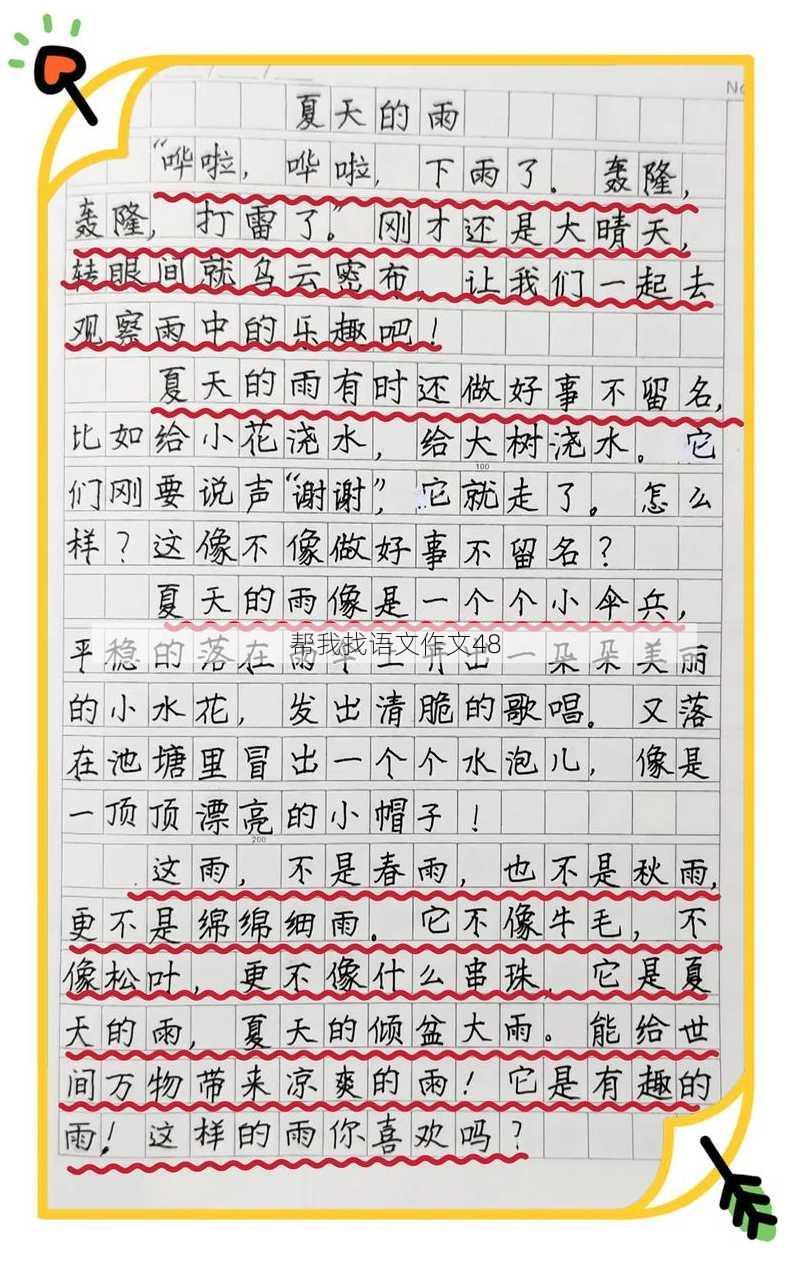 No
夏天的雨
“哗啦，哗啦，下雨了。轰隆，
轰隆，打雷了。”刚才还是大晴天，
转眼间就乌云密布，让我们一起去
观察雨中的乐趣吧！
夏天的雨有时还做好事不留名，
比如给小花浇水，给大树浇水。它
们刚要说声“谢谢”，它就走了。怎么
100
样？这像不像做好事不留名？
夏天的雨像是一个个小伞兵，
帮我找语文作文48
平稳的落在雨伞上开出一朵朵美丽
的小水花，发出清脆的歌唱。又落
在池塘里冒出一个个水泡儿，像是
一顶顶漂亮的小帽子！
200
这雨，不是春雨，也不是秋雨，
更不是绵绵细雨。它不像牛毛，不
像松叶，更不像什么串珠，它是夏
天的雨，夏天的倾盆大雨。能给世
间万物带来凉爽的雨！它是有趣的
雨！这样的雨你喜欢吗？